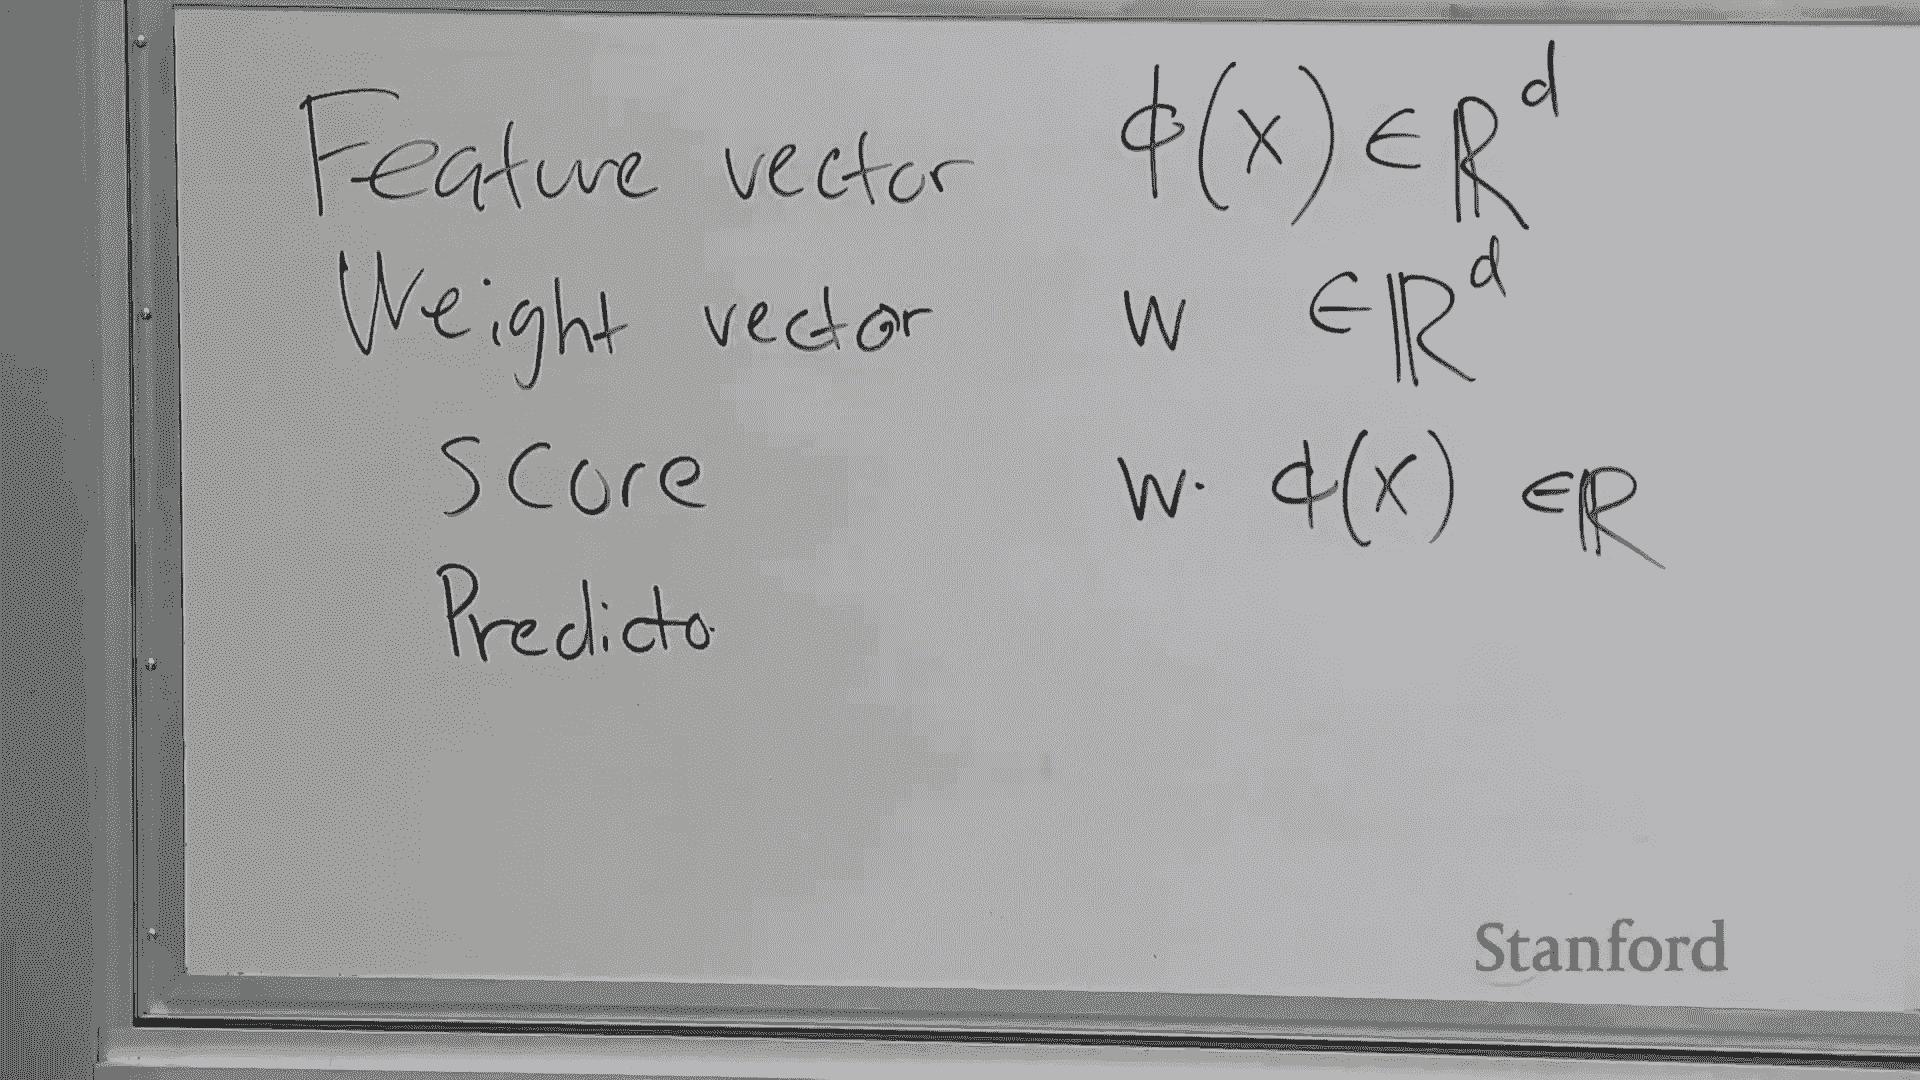 Feature vector ϕ(x) ∈ ℝ^d
Weight vector w ∈ ℝ^d
Score w · ϕ(x) ∈ ℝ
Predicto
Stanford